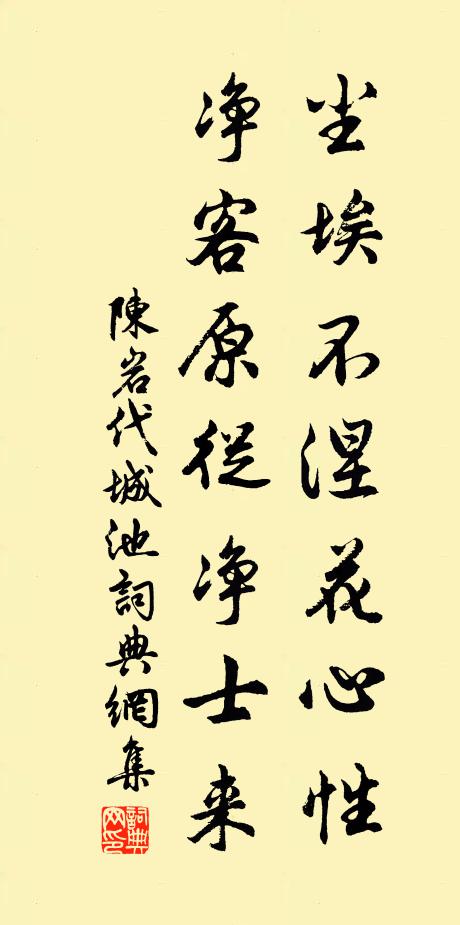 尘埃不涅花心性
净客原従净士来
陳岩代城池詞典網集
詞典网印